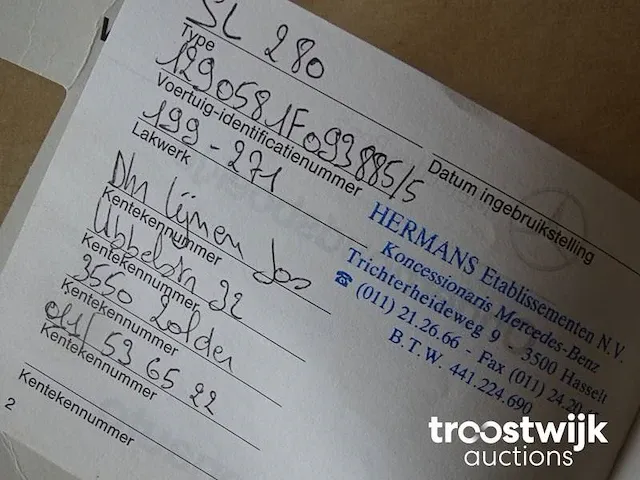 SL 280
Type
129058 1F093885/5
Voertuig-identificatienummer
Datum ingebruikstelling
199 - 271
Lakwerk
Dhr Lijnen Jos
Kentekennummer
Ubbelstr 32
Kentekennummer
3550 Zolder
Kentekennummer
011/53 65 22
Kentekennummer
Kentekennummer
2
HERMANS Etablissementen N.V.
Koncessionaris Mercedes-Benz
Trichterheideweg 9 - 3500 Hasselt
☎ (011) 21.26.66 - Fax (011) 24.20.
B.T.W. 441.224.690
troostwijk
auctions